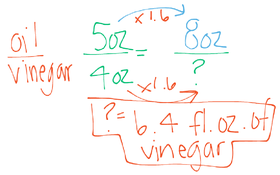 x1.6
oil 5oz = 8oz
vinegar 4oz ?
x1.6
?= 6.4 fl.oz.of
vinegar